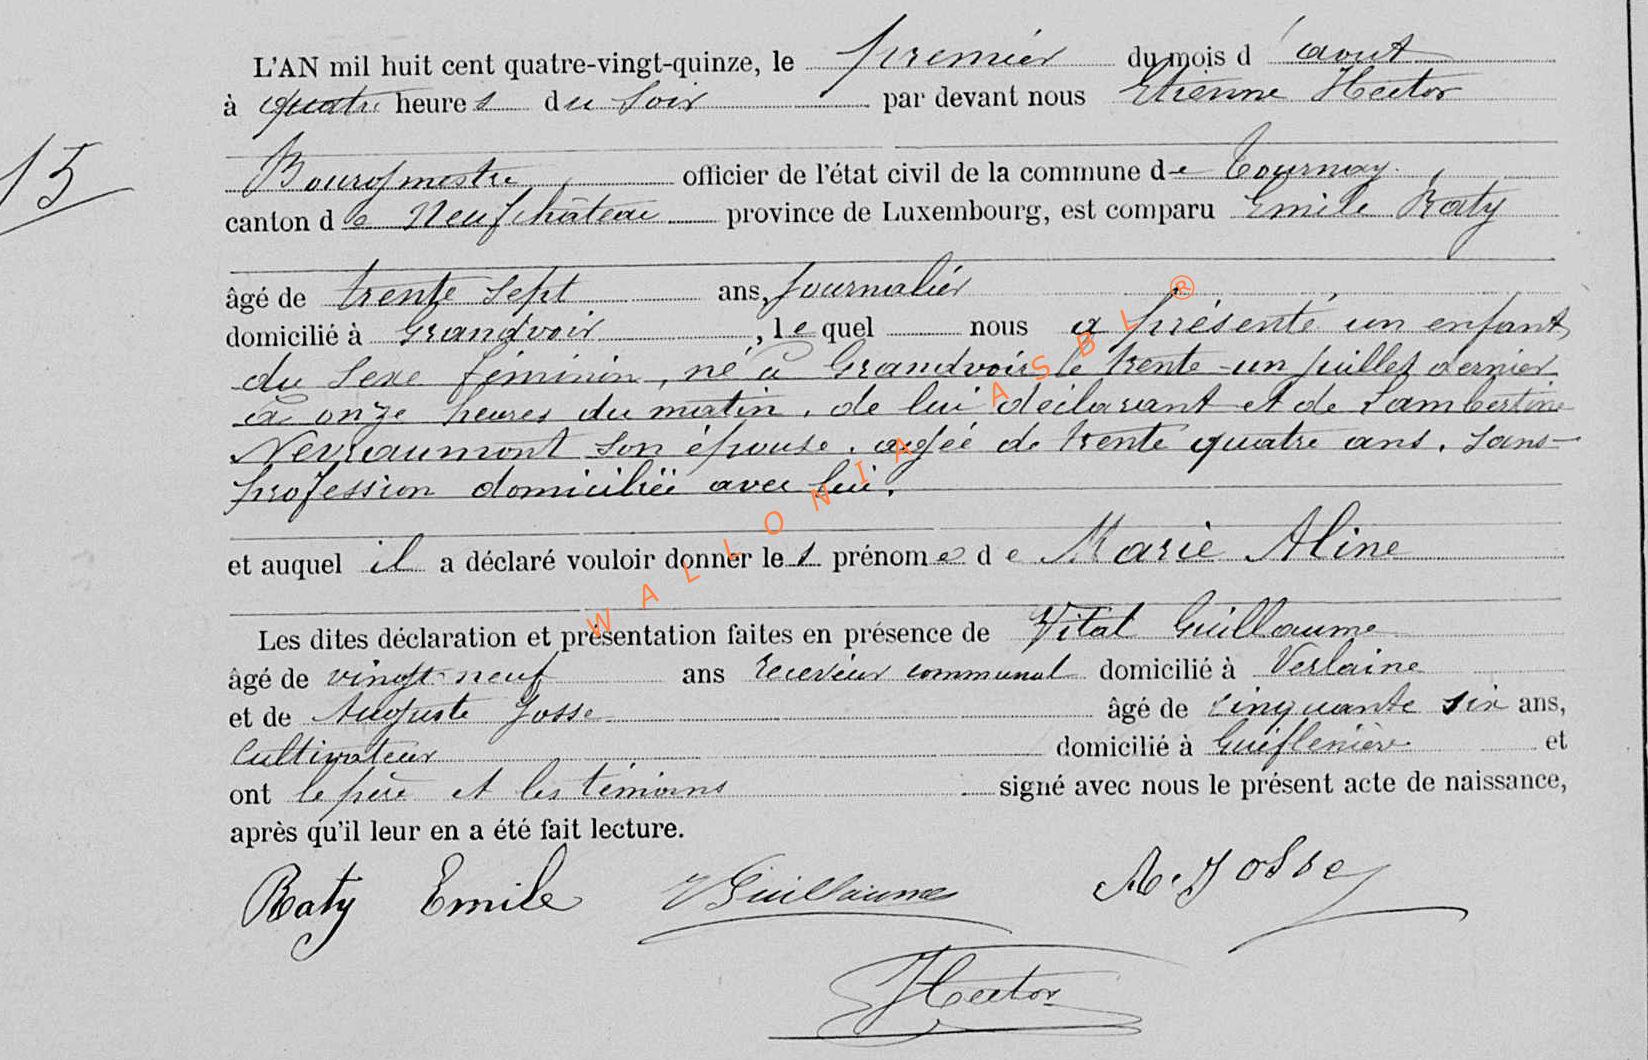 L'AN mil huit cent quatre-vingt-quinze, le premier du mois d'aout
à quatre heures du soir par devant nous Etienne Hector
15
Bourgmestre officier de l'état civil de la commune de Tournay.
canton de Neufchâteau province de Luxembourg, est comparu Emile Raty
âgé de trente sept ans, journalier
domicilié à Grandvoir, lequel nous a présenté un enfant
du sexe féminin, né à Grandvoir le trente-un juillet dernier
à onze heures du matin, de lui déclarant et de Lambertine
Nevraumont son épouse, agée de trente quatre ans, sans
profession domiciliée avec lui.
et auquel il a déclaré vouloir donner les prénoms de Marie Aline
Les dites déclaration et présentation faites en présence de Vital Guillaume
âgé de vingt-neuf ans receveur communal domicilié à Verlaine
et de Auguste Josse âgé de cinquante six ans,
cultivateur domicilié à et
ont le père et les témoins signé avec nous le présent acte de naissance,
après qu'il leur en a été fait lecture.
Raty Emile VGuillaume A. Josse
Hector
WALLONIA ASBL ®